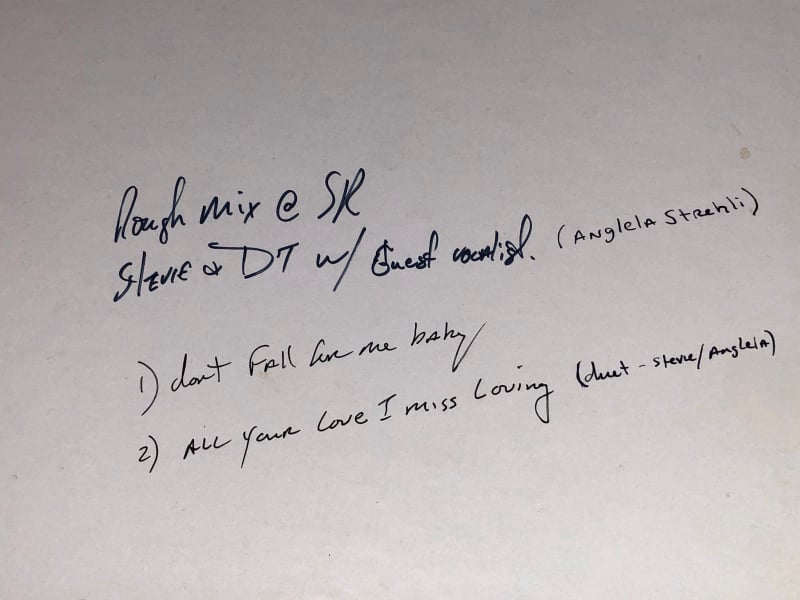 Rough mix @ SR
Stevie & DT w/ Guest vocalist. (Anglela Strehli)
1) dont Fall for me baby
2) ALL your Love I miss Loving (duet - stevie/Anglela)